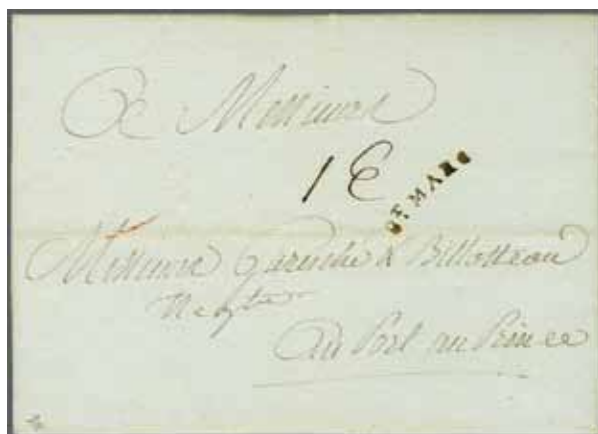 A Messieurs
ST MARC
Messieurs Garesché & Billotteau
Negts
Au Port au Prince